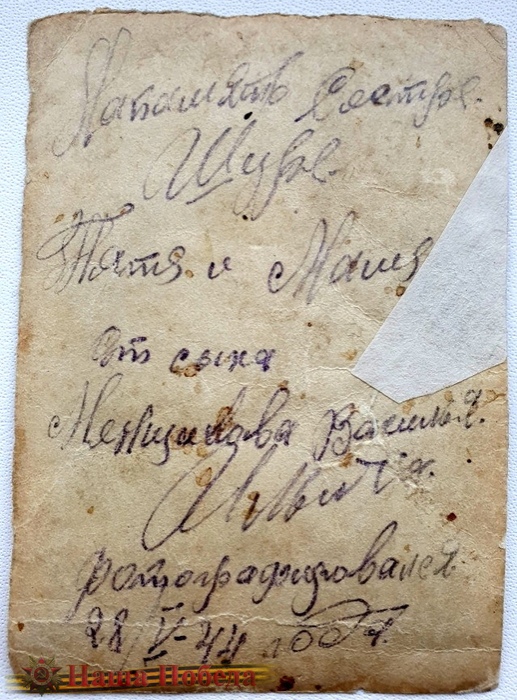 На память Сестре.
Шуре.
Тятя и Мамя
от сына
Меншикава Василья.
фотографировался
28/V-44 года.
Наша Победа